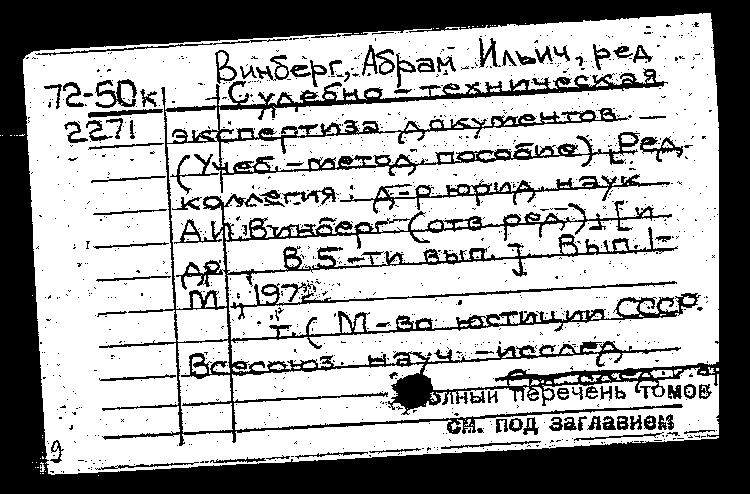 Винберг, Абрам Ильич, ред
72-50к Судебно-техническая
2271 экспертиза документов
(Учеб.-метод. пособие). Ред.
коллегия: д-р юрид. наук
А.И. Винберг (отв. ред.), [и
др. В 5-ти вып.]. Вып. 1-
М., 1972.
т. (М-во юстиции СССР.
Всесоюз. науч.-исслед.
См. след. к-ар
полный перечень томов
см. под заглавием
9